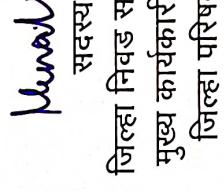 सदस्य
जिल्हा निवड स
मुख्य कार्यकारी
जिल्हा परिष